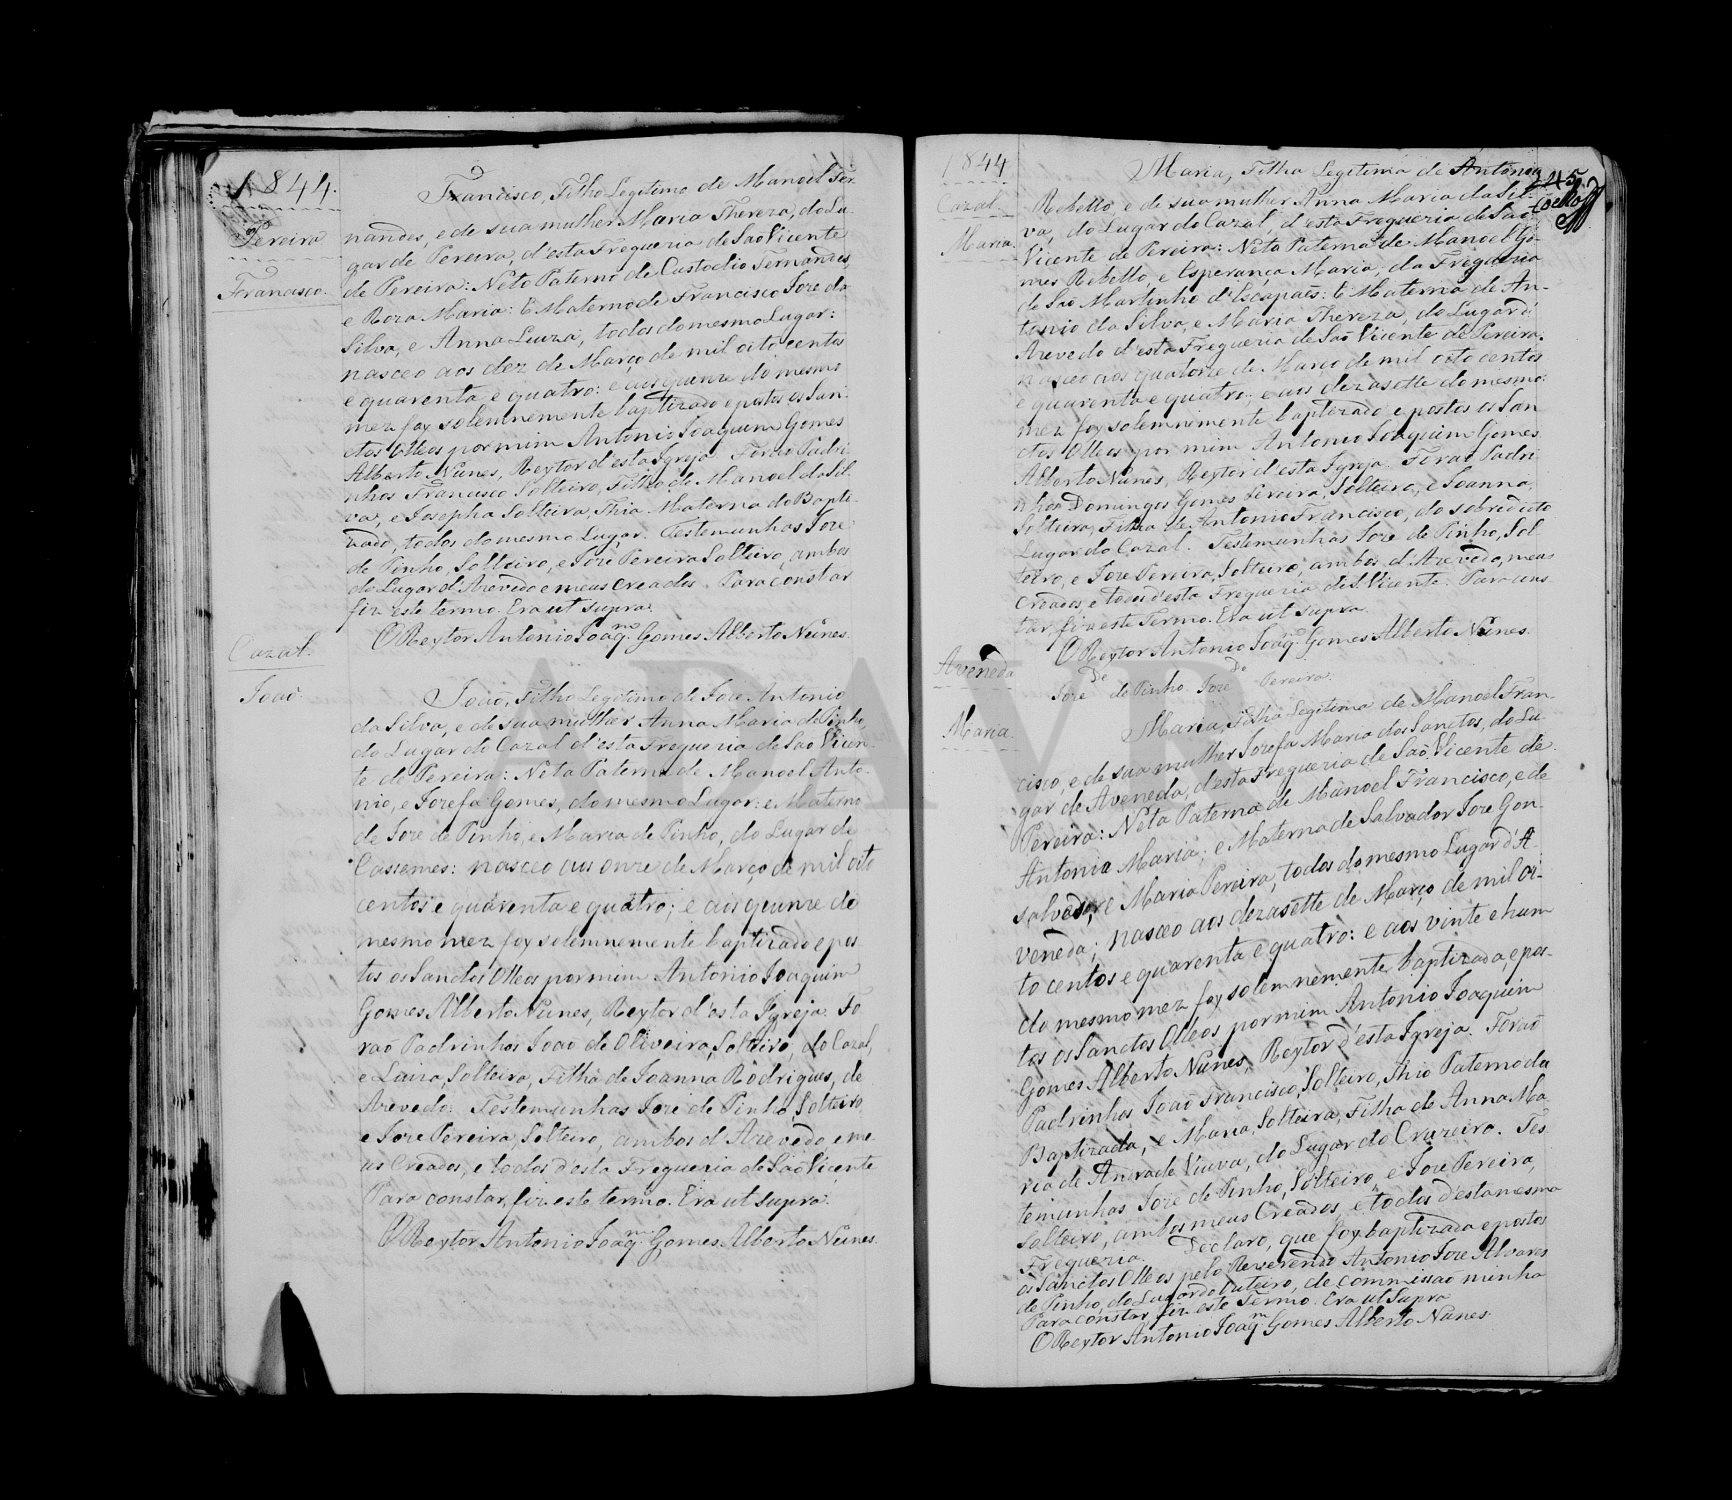 1844.
Pereira
Francisco.
Francisco, Filho Legitimo de Manoel Fer
nandes, e de sua mulher Maria Thereza, do Lu
gar de Pereira, d'esta Freguezia de Saõ Vicente
de Pereira: Neto Paterno de Custodio Fernandes,
e Roza Maria: E Materno de Francisco Joze da
Silva, e Anna Luiza, todos do mesmo Lugar:
nasceo aos dez de Março de mil oito centos
e quarenta e quatro: e aos quinze do mesmo
mez foy solemnemente baptizado e postos os San
ctos Olleos por mim Antonio Joaquim Gomes
Alberto Nunes, Reytor d'esta Igreja. Foraõ Padri
nhos Francisco Solteiro, Filho de Manoel da Sil
va, e Josepha Solteira, Thia Materna do Bapti
zado, todos do mesmo Lugar. Testemunhas Joze
de Pinho, Solteiro, e Joze Pereira Solteiro, ambos
do Lugar d'Azevedo e meus Creados. Para constar
fiz este termo. Era ut supra.
O Reytor Antonio Joaqm. Gomes Alberto Nunes.
Cazal.
Joaõ
Joaõ, Filho Legitimo de Joze Antonio
da Silva, e de sua mulher Anna Maria de Pinho,
do Lugar do Cazal d'esta Freguezia de Saõ Vicen
te de Pereira: Neto Paterno de Manoel Anto
nio, e Jozefa Gomes, do mesmo Lugar: e Materno
de Joze de Pinho, e Maria de Pinho, do Lugar de
Cassemes: nasceo aos onze de Março de mil oito
centos e quarenta e quatro; e aos quinze do
mesmo mez foy solemnemente baptizado e pos
tos os Sanctos Olleos por mim Antonio Joaquim
Gomes Alberto Nunes, Reytor d'esta Igreja. Fo
raõ Padrinhos Joaõ de Oliveira, Solteiro, do Cazal,
e Luiza, Solteira, Filha de Joanna Rodrigues, de
Azevedo. Testemunhas Joze de Pinho, Solteiro,
e Joze Pereira, Solteiro, ambos d'Azevedo e me
us Creados, e todos d'esta Freguezia de Saõ Vicente
Para constar, fiz este termo. Era ut supra.
O Reytor Antonio Joaqm. Gomes Alberto Nunes.
1844
Cazal.
Maria.
245
Coelho
Maria, Filha Legitima de Antonio
Rebello e de sua mulher Anna Maria da Sil-
va, do Lugar do Cazal, d'esta Freguezia de Saõ
Vicente de Pereira: Neta Paterna de Manoel Go-
mes Rebello, e Esperança Maria, da Freguezia
de Saõ Martinho d'Escapaẽs: E Materna de An-
tonio da Silva, e Maria Thereza, do Lugar d'
Azevedo d'esta Freguezia de Saõ Vicente de Pereira.
nasceo aos quatorze de Março de mil oito centos
e quarenta e quatro; e aos dezasette do mesmo
mez foy solemnemente baptizado e postos os San
ctos Olleos por mim Antonio Joaquim Gomes
Alberto Nunes, Reytor d'esta Igreja. Foraõ Padri
nhos Domingos Gomes Pereira, Solteiro, e Joanna,
Solteira, Filha de Antonio Francisco, do sobredicto
Lugar do Cazal. Testemunhas Joze de Pinho, Sol
teiro, e Joze Pereira, Solteiro, ambos d'Azevedo, meus
Creados, e todos d'esta Freguezia de S. Vicente. Para cons
tar, fiz este Termo. Era ut supra.
O Reytor Antonio Joaqm. Gomes Alberto Nunes.
Joze De do Pinho. Joze De Pereira.
Aveneda
Maria.
Maria, Filha Legitima de Manoel Fran-
cisco, e de sua mulher Jozefa Maria dos Sanctos, do Lu
gar de Aveneda, d'esta Freguezia de Saõ Vicente de
Pereira: Neta Paterna de Manoel Francisco, e de
Antonia Maria; e Materna de Salvador Joze Gon
salves, e Maria Pereira, todos do mesmo Lugar d'A
veneda; nasceo aos dezasette de Março de mil oi-
to centos e quarenta e quatro: e aos vinte e hum
do mesmo mez foy solemnemente baptizada, e pos-
tos os Sanctos Olleos por mim Antonio Joaquim
Gomes Alberto Nunes, Reytor d'esta Igreja. Foraõ
Padrinhos Joaõ Francisco, Solteiro, Thio Paterno da
Baptizada, e Maria, Solteira, Filha de Anna Ma
ria de Andrade Viuva, do Lugar do Cruzeiro. Tes
temunhas Joze de Pinho, Solteiro, e Joze Pereira,
Solteiro, ambos meus Creados, e todos d'esta mesma
Freguezia. Declaro, que foy baptizada e postos
os Sanctos Olleos pelo Reverendo Antonio Joze Alvares
de Pinho, do Lugar do Outeiro, de commissaõ minha
Para constar, fiz este Termo. Era ut Supra
O Reytor Antonio Joaqm. Gomes Alberto Nunes.
ADAVR